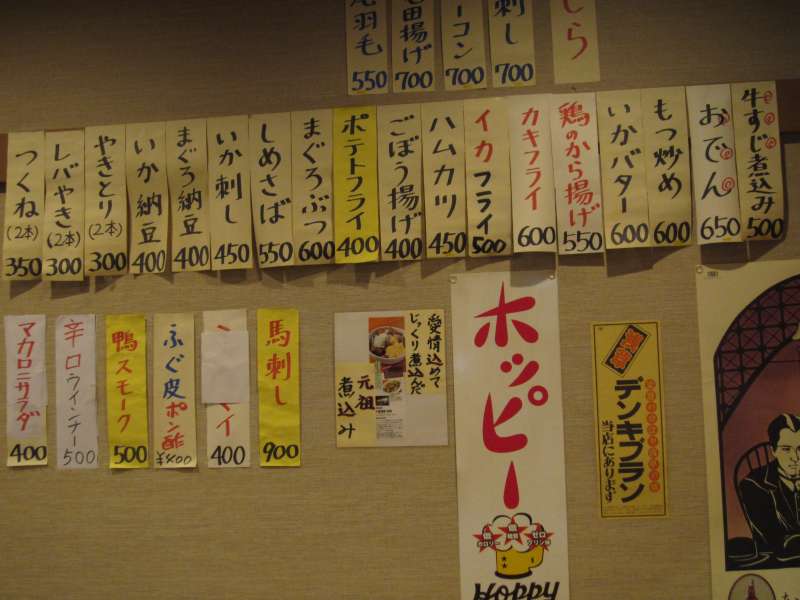 550
揚げ
700
コン
700
刺し
700
しら
牛すじ煮込み
500
おでん
650
もつ炒め
600
いかバター
600
鶏のから揚げ
550
カキフライ
600
イカフライ
500
ハムカツ
450
ごぼう揚げ
400
ポテトフライ
400
まぐろぶつ
600
しめさば
550
いか刺し
450
まぐろ納豆
400
いか納豆
400
やきとり(2本)
300
レバやき(2本)
300
つくね(2本)
350
馬刺し
900
イ
400
ふぐ皮ポン酢
¥400
鴨スモーク
500
辛口ウィンナー
500
マカロニサラダ
400
愛情込めて
じっくり煮込んだ
元祖
煮込み
ホッピー
低
カロリー
低
糖質
ゼロ
プリン体
Hoppy
デンキブラン
当店にあります